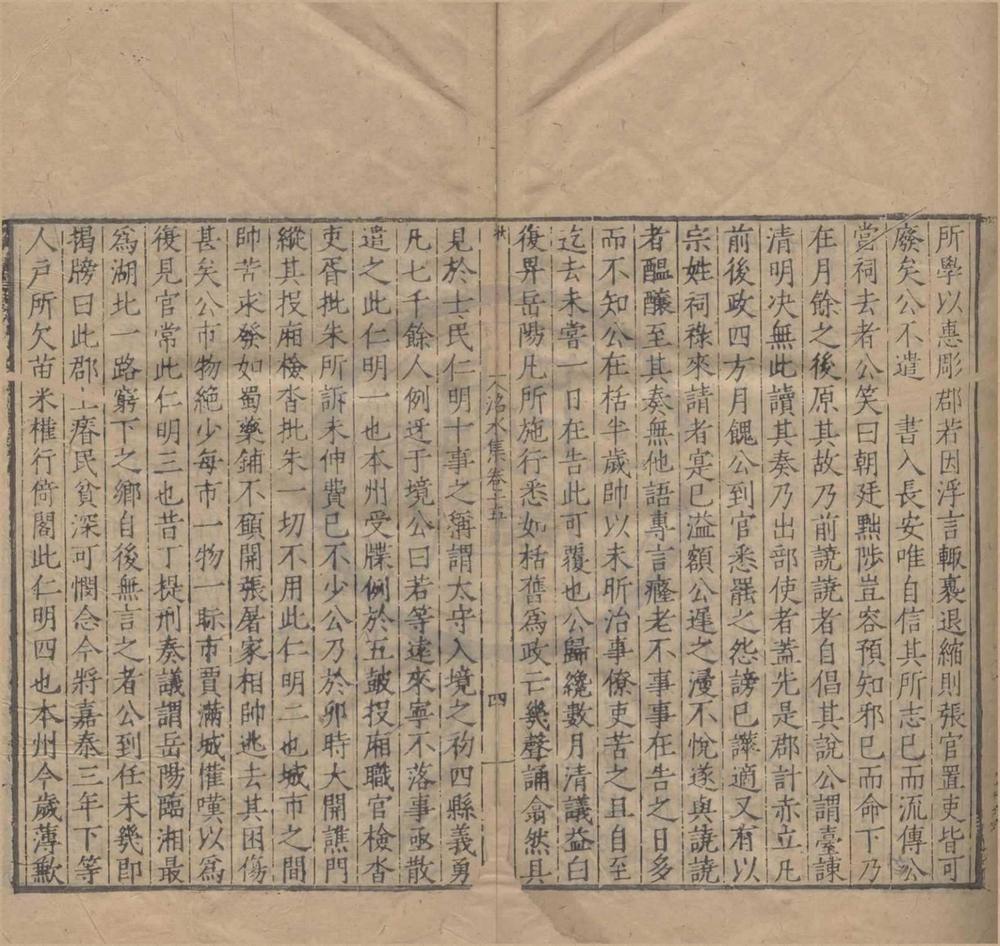 所學以惠彫郡若因浮言輒裹退縮則張官置吏皆可
廢矣公不遣　書入長安唯自信其所志已而流傳公
當祠去者公笑曰朝廷黜陟豈容預知邪已而命下乃
在月餘之後原其故乃前譊譊者自倡其說公謂臺諫
清明决無此讀其奏乃出部使者蓋先是郡計赤立凡
前後政四方月餽公到官悉罷之怨謗已讙適又有以
宗姓祠祿來請者寔已溢額公遲之漫不悅遂與譊譊
者醞釀至其奏無他語專言癃老不事事在告之日多
而不知公在栝半歲帥以未昕治事僚吏苦之且自至
迄去未嘗一日在告此可覆也公歸纔數月清議益白
復畀岳陽凡所施行悉如栝舊爲政亡幾聲誦翕然具
洺水集卷十五
四
見於士民仁明十事之稱謂太守入境之初四縣義勇
凡七千餘人例迓于境公曰若等遠來寧不落事亟散
遣之此仁明一也本州受牒例於五鼓投廂職官檢沓
吏胥批朱所訴未伸費已不少公乃於卯時大開譙門
縱其投廂檢沓批朱一切不用此仁明二也城市之間
帥苦求發如蜀藥鋪不願開張屠家相帥逃去其困傷
甚矣公市物絶少每市一物一眎市賈滿城懽嘆以爲
復見官常此仁明三也昔丁提刑奏議謂岳陽臨湘最
爲湖北一路窮下之鄉自後無言之者公到任未幾即
揭牓曰此郡土瘠民貧深可憫念今將嘉泰三年下等
人戶所欠苗米權行倚閣此仁明四也本州今歲薄歉